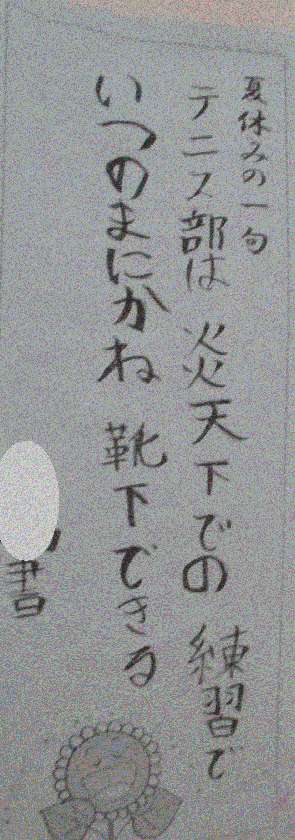 夏休みの一句
テニス部は 炎天下での 練習で
いつのまにかね 靴下できる
書